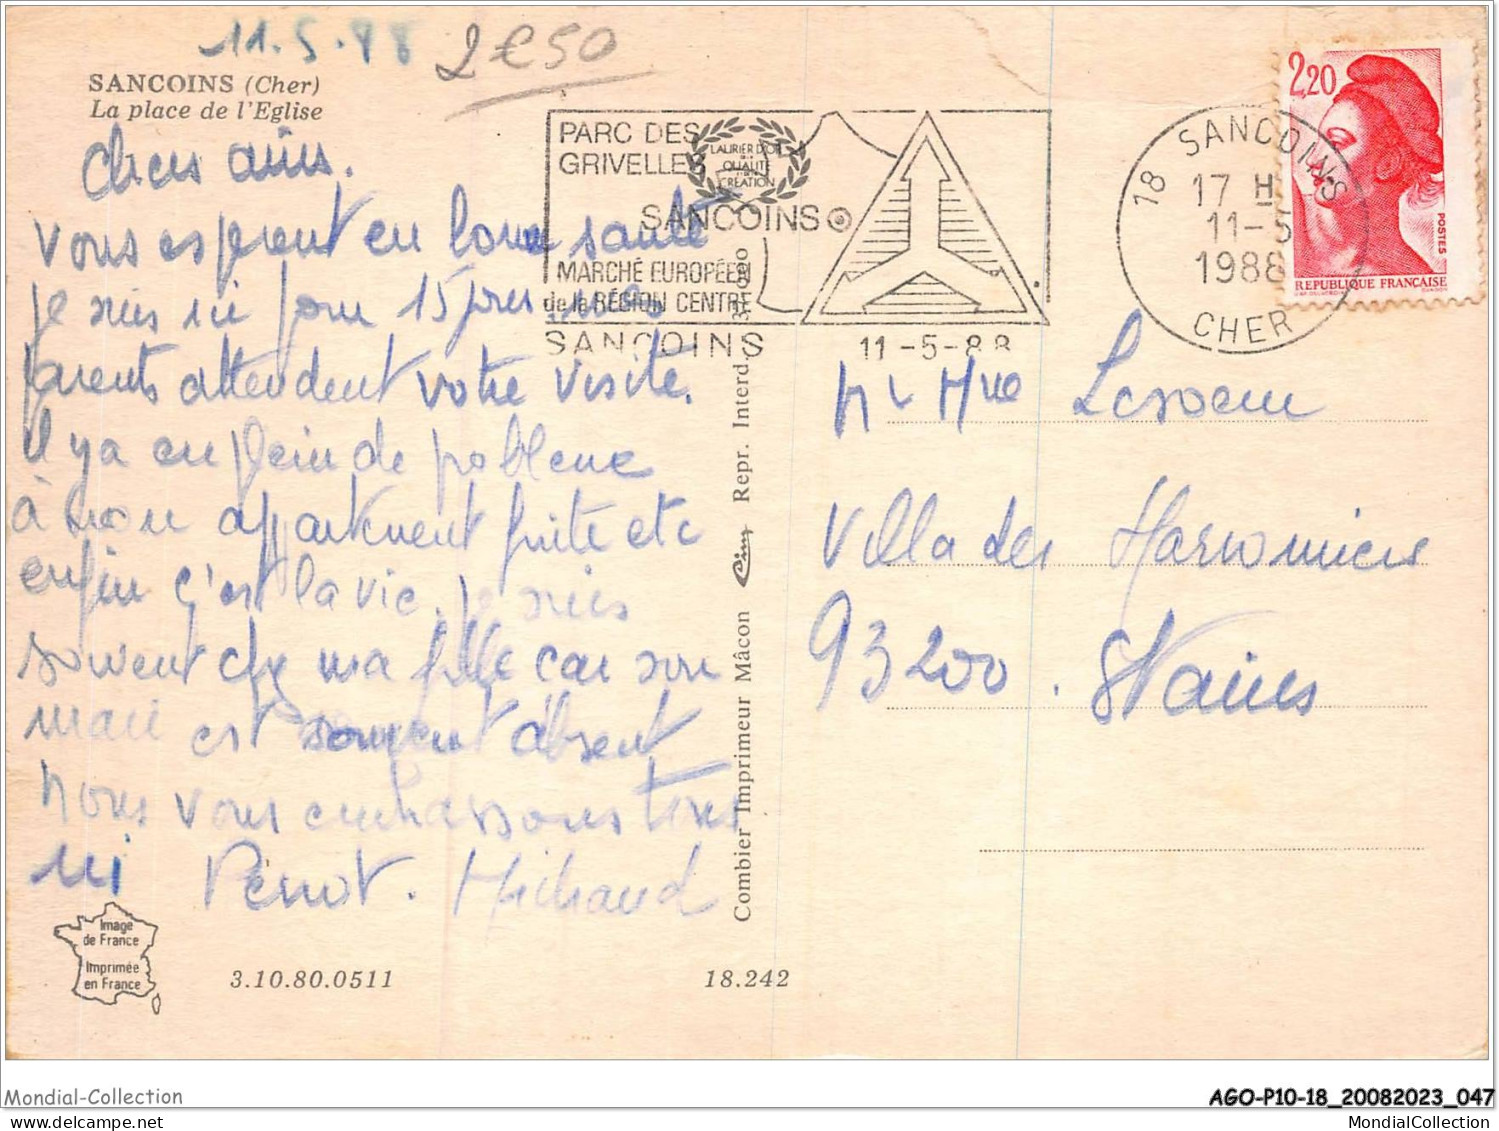 11.5.88
2€50
SANCOINS (Cher)
La place de l'Eglise
chers amis.
Vous esperent en bonne santé
je suis ici pour 15 jours mes
parents attendent votre visite.
il y a eu plein de probleme
à mon appartement fuite etc
enfin ç'est la vie. je suis
souvent chez ma fille car son
mari est souvent absent
nous vous embrassons tous
ici Perrot. Michaud
PARC DES
GRIVELLES
LAURIER D'OR
QUALITÉ
CRÉATION
SANCOINS
MARCHÉ EUROPÉEN
de la RÉGION CENTRE
SANCOINS 11-5-88
18 SANCOINS
17 H
11-5
1988
CHER
2,20
POSTES
REPUBLIQUE FRANÇAISE
Mr Mme Lesoeur
Villa des Harmonies
93200. Stains
Combier Imprimeur Mâcon Cim Repr. Interd.
Image
de France
Imprimée
en France
3.10.80.0511
18.242
Mondial-Collection
AGO-P10-18_20082023_047
MondialCollection